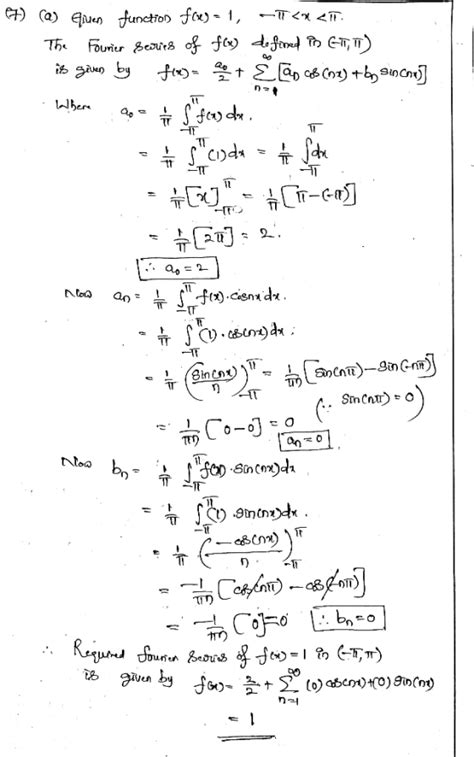 (7) (a) Given function f(x) = 1, -π < x < π.
The Fourier series of f(x) defined in (-π, π)
is given by f(x) = a₀/2 + ∑_{n=1}^{∞} [aₙ cos(nx) + bₙ sin(nx)]
Where a₀ = 1/π ∫_{-π}^{π} f(x) dx.
= 1/π ∫_{-π}^{π} (1) dx = 1/π ∫_{-π}^{π} dx
= 1/π [x]_{-π}^{π} = 1/π [π-(-π)]
= 1/π [2π] = 2.
∴ a₀ = 2
Now aₙ = 1/π ∫_{-π}^{π} f(x). cosnx dx.
= 1/π ∫_{-π}^{π} (1). cos(nx) dx.
= 1/π (sin(nx)/n)_{-π}^{π} = 1/πn [sin(nπ) - sin(-nπ)]
(∵ sin(nπ) = 0)
= 1/πn [0-0] = 0
aₙ = 0
Now bₙ = 1/π ∫_{-π}^{π} f(x) . sin(nx) dx
= 1/π ∫_{-π}^{π} (1) . sin(nx) dx.
= 1/π (-cos(nx)/n)_{-π}^{π}
= -1/πn [cos(nπ) - cos(-nπ)]
= -1/πn [0] = 0 ∴ bₙ = 0
∴ Required fourier series of f(x) = 1 in (-π, π)
is given by f(x) = 2/2 + ∑_{n=1}^{∞} (0) cos(nx) + (0) sin(nx)
= 1